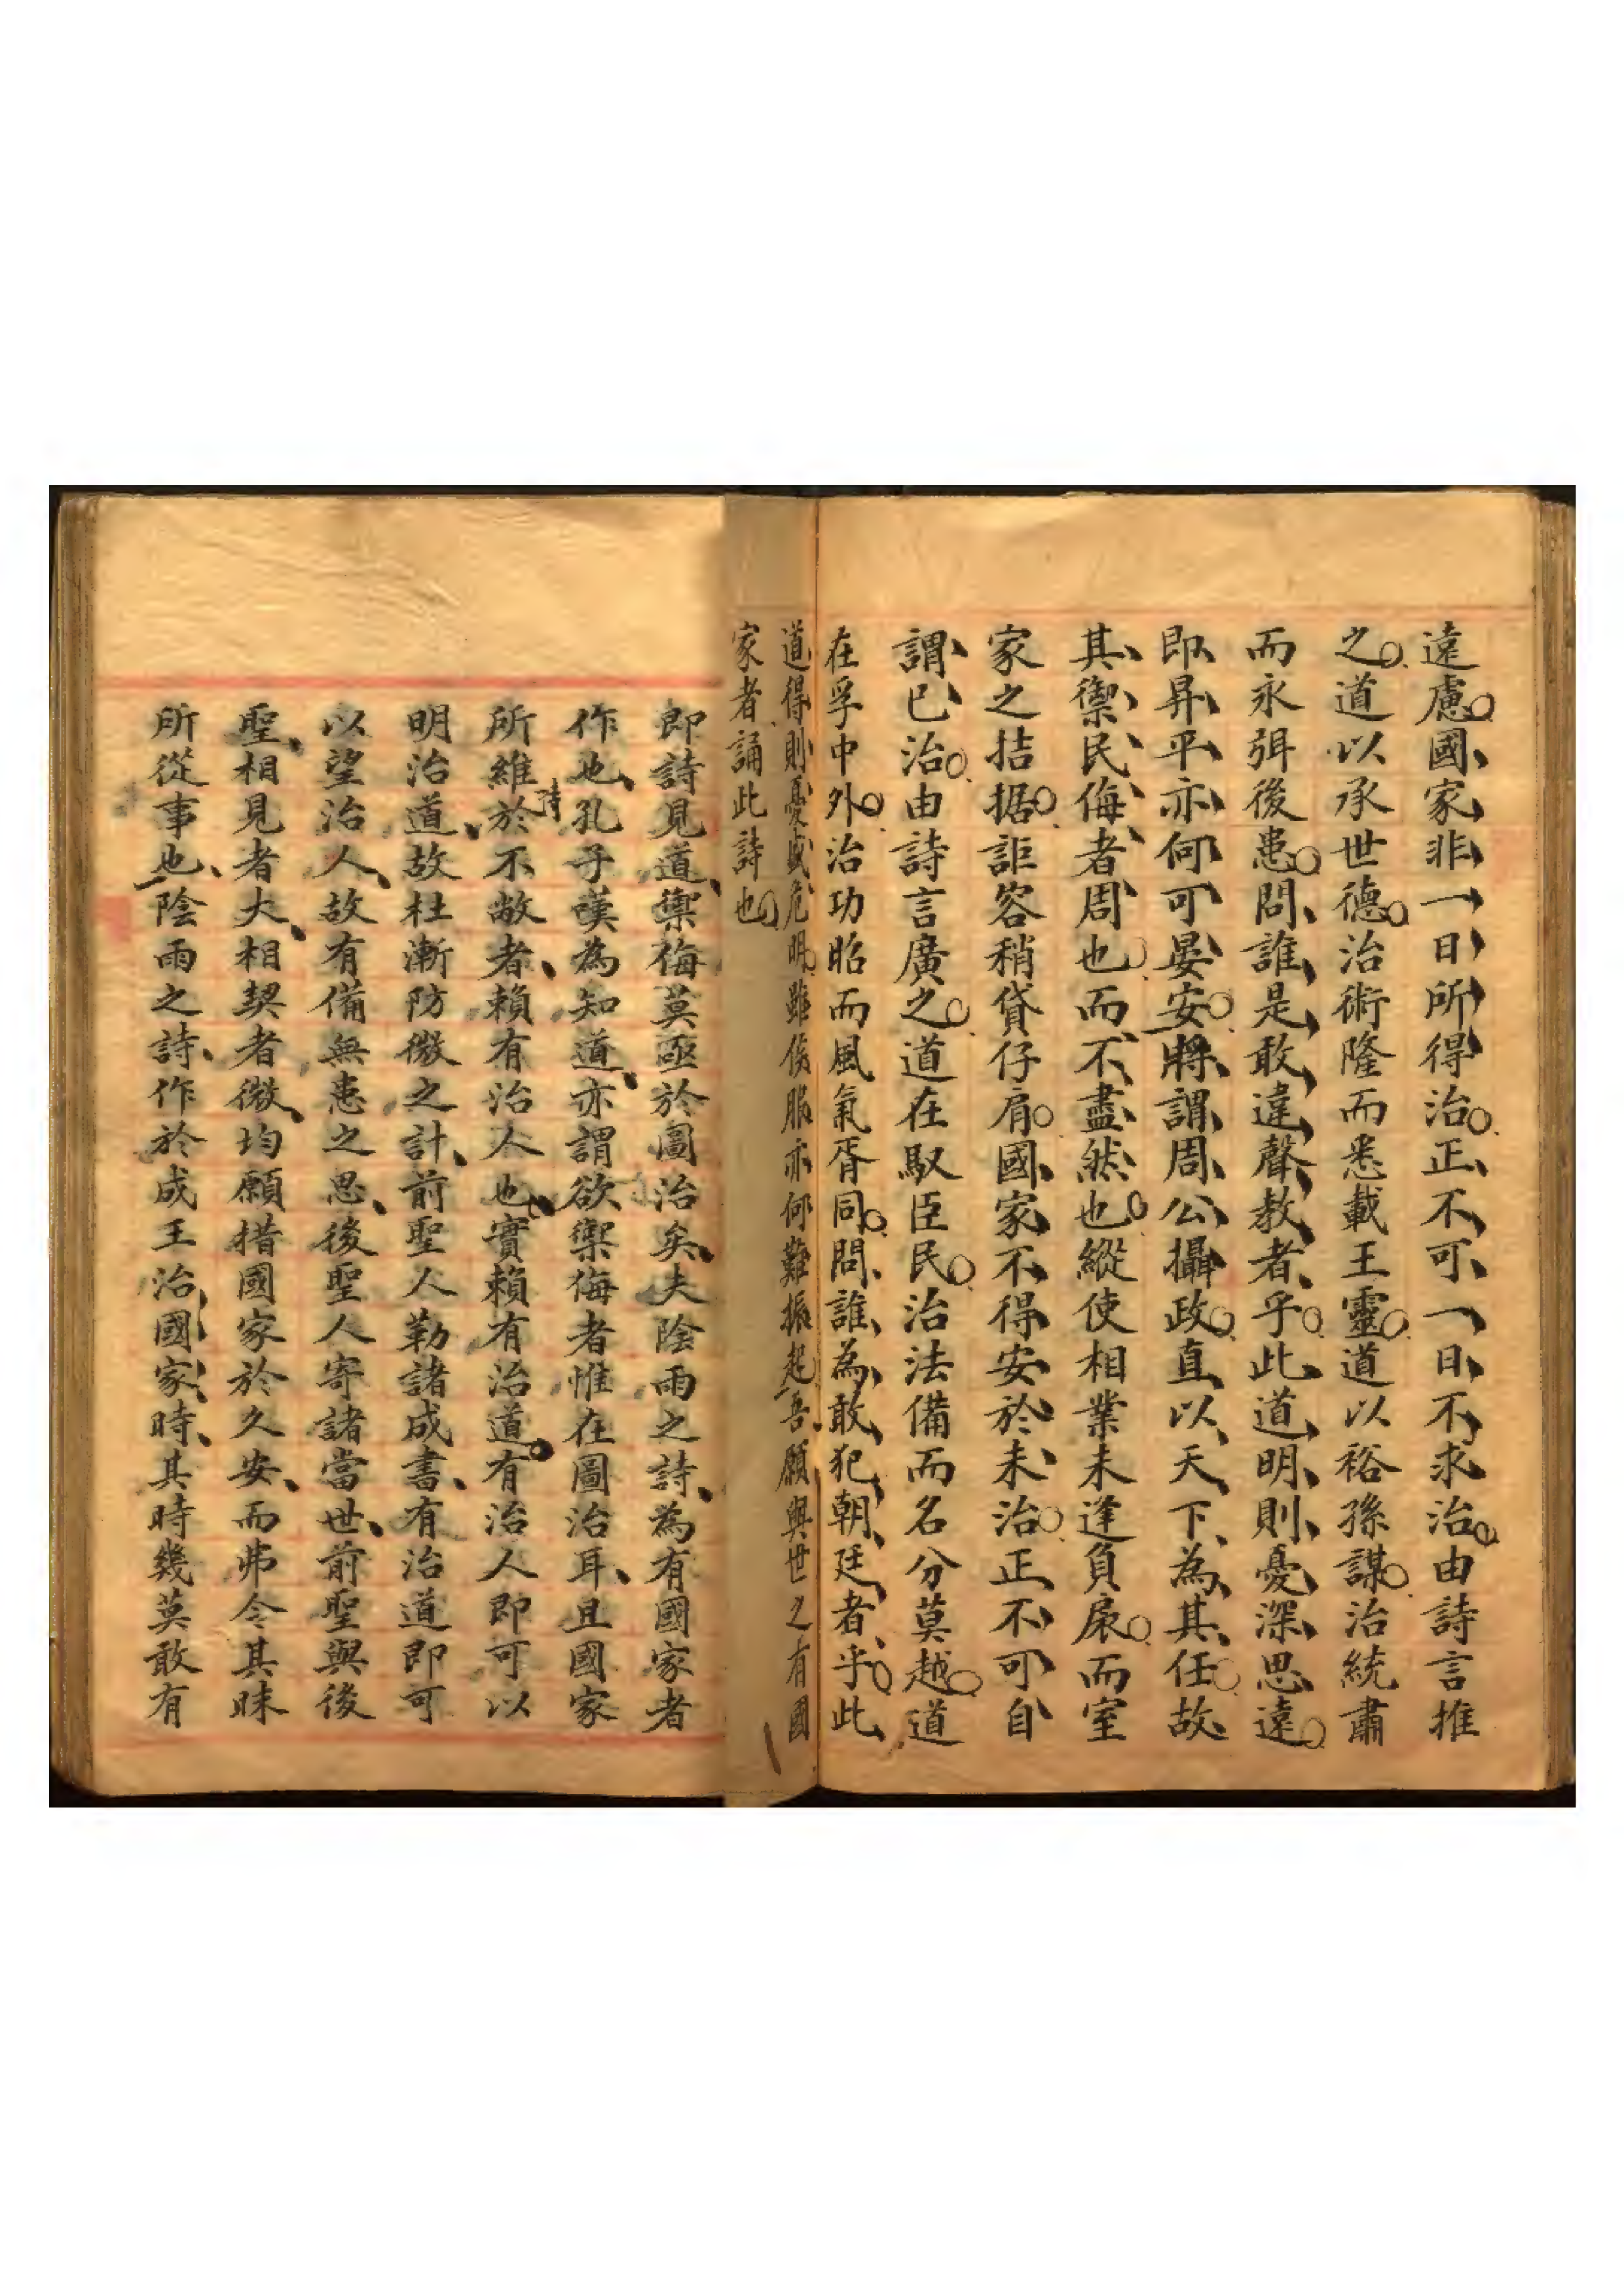 遠慮國家非一日所得治正不可一日不求治由詩言推
之道以承世德治術隆而悉載王靈道以裕孫謀治統肅
而永弭後患問誰是敢違聲教者乎此道明則憂深思遠
即昇平亦何可晏安將謂周公攝政直以天下為其任故
其禦民侮者周也而不盡然也縱使相業未逢負扆而室
家之拮据詎容稍貸仔肩國家不得安於未治正不可自
謂已治由詩言廣之道在馭臣民治法備而名分莫越道
在孚中外治功昭而風氣胥同問誰為敢犯朝廷者乎此
道得則憂盛危明雖侯服亦何難振起吾願與世之有國
家者誦此詩也
即詩見道禦侮莫亟於圖治矣夫陰雨之詩為有國家者
作也孔子嘆為知道亦謂欲禦侮者惟在圖治耳且國家
所維於不敝者賴有治人也實賴有治道有治人即可以
明治道故杜漸防微之計前聖人勒諸成書有治道即可
以望治人故有備無患之思後聖人寄諸當世前聖與後
聖相見者大相契者微均願措國家於久安而弗令其昧
所從事也陰雨之詩作於成王治國家時其時幾莫敢有